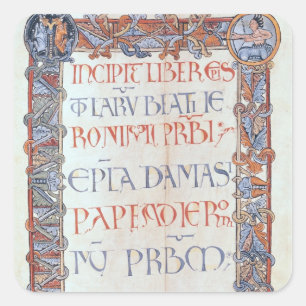 INCIPIT LIBER EPIS
TOLARU BEATI IE
RONIMI PRBI;
EPLA DAMASI
PAPE AD IERO
NU PRBM;